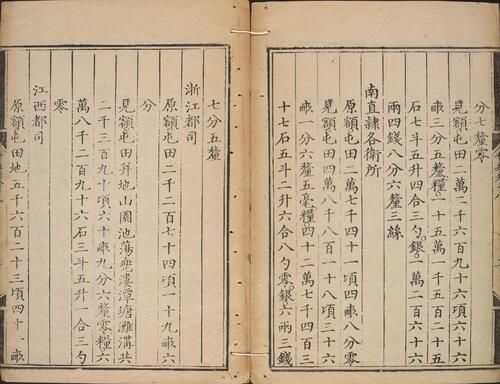 分七釐零
見額屯田二萬二千六百九十六頃六十六
畝三分五釐糧二十五萬一千五百二十五
石七斗五升四合三勺銀一萬二百六十六
兩四錢八分六釐三絲
南直隷各衛所
原額屯田二萬七千四十一頃四畝八分零
見額屯田四萬八千八百一十八頃三十六
畝一分六釐五毫糧四十二萬七千四百三
十七石五斗二升六合八勺零銀六兩三錢
七分五釐
浙江都司
原額屯田二千二百七十四頃一十九畝六
分
見額屯田并地山園池蕩兠漊潭塘灘溝共
二千三百九十頃六十畝九分六釐零糧六
萬八千二百九十六石三斗五升一合三勺
零
江西都司
原額屯田地五千六百二十三頃四十一畝